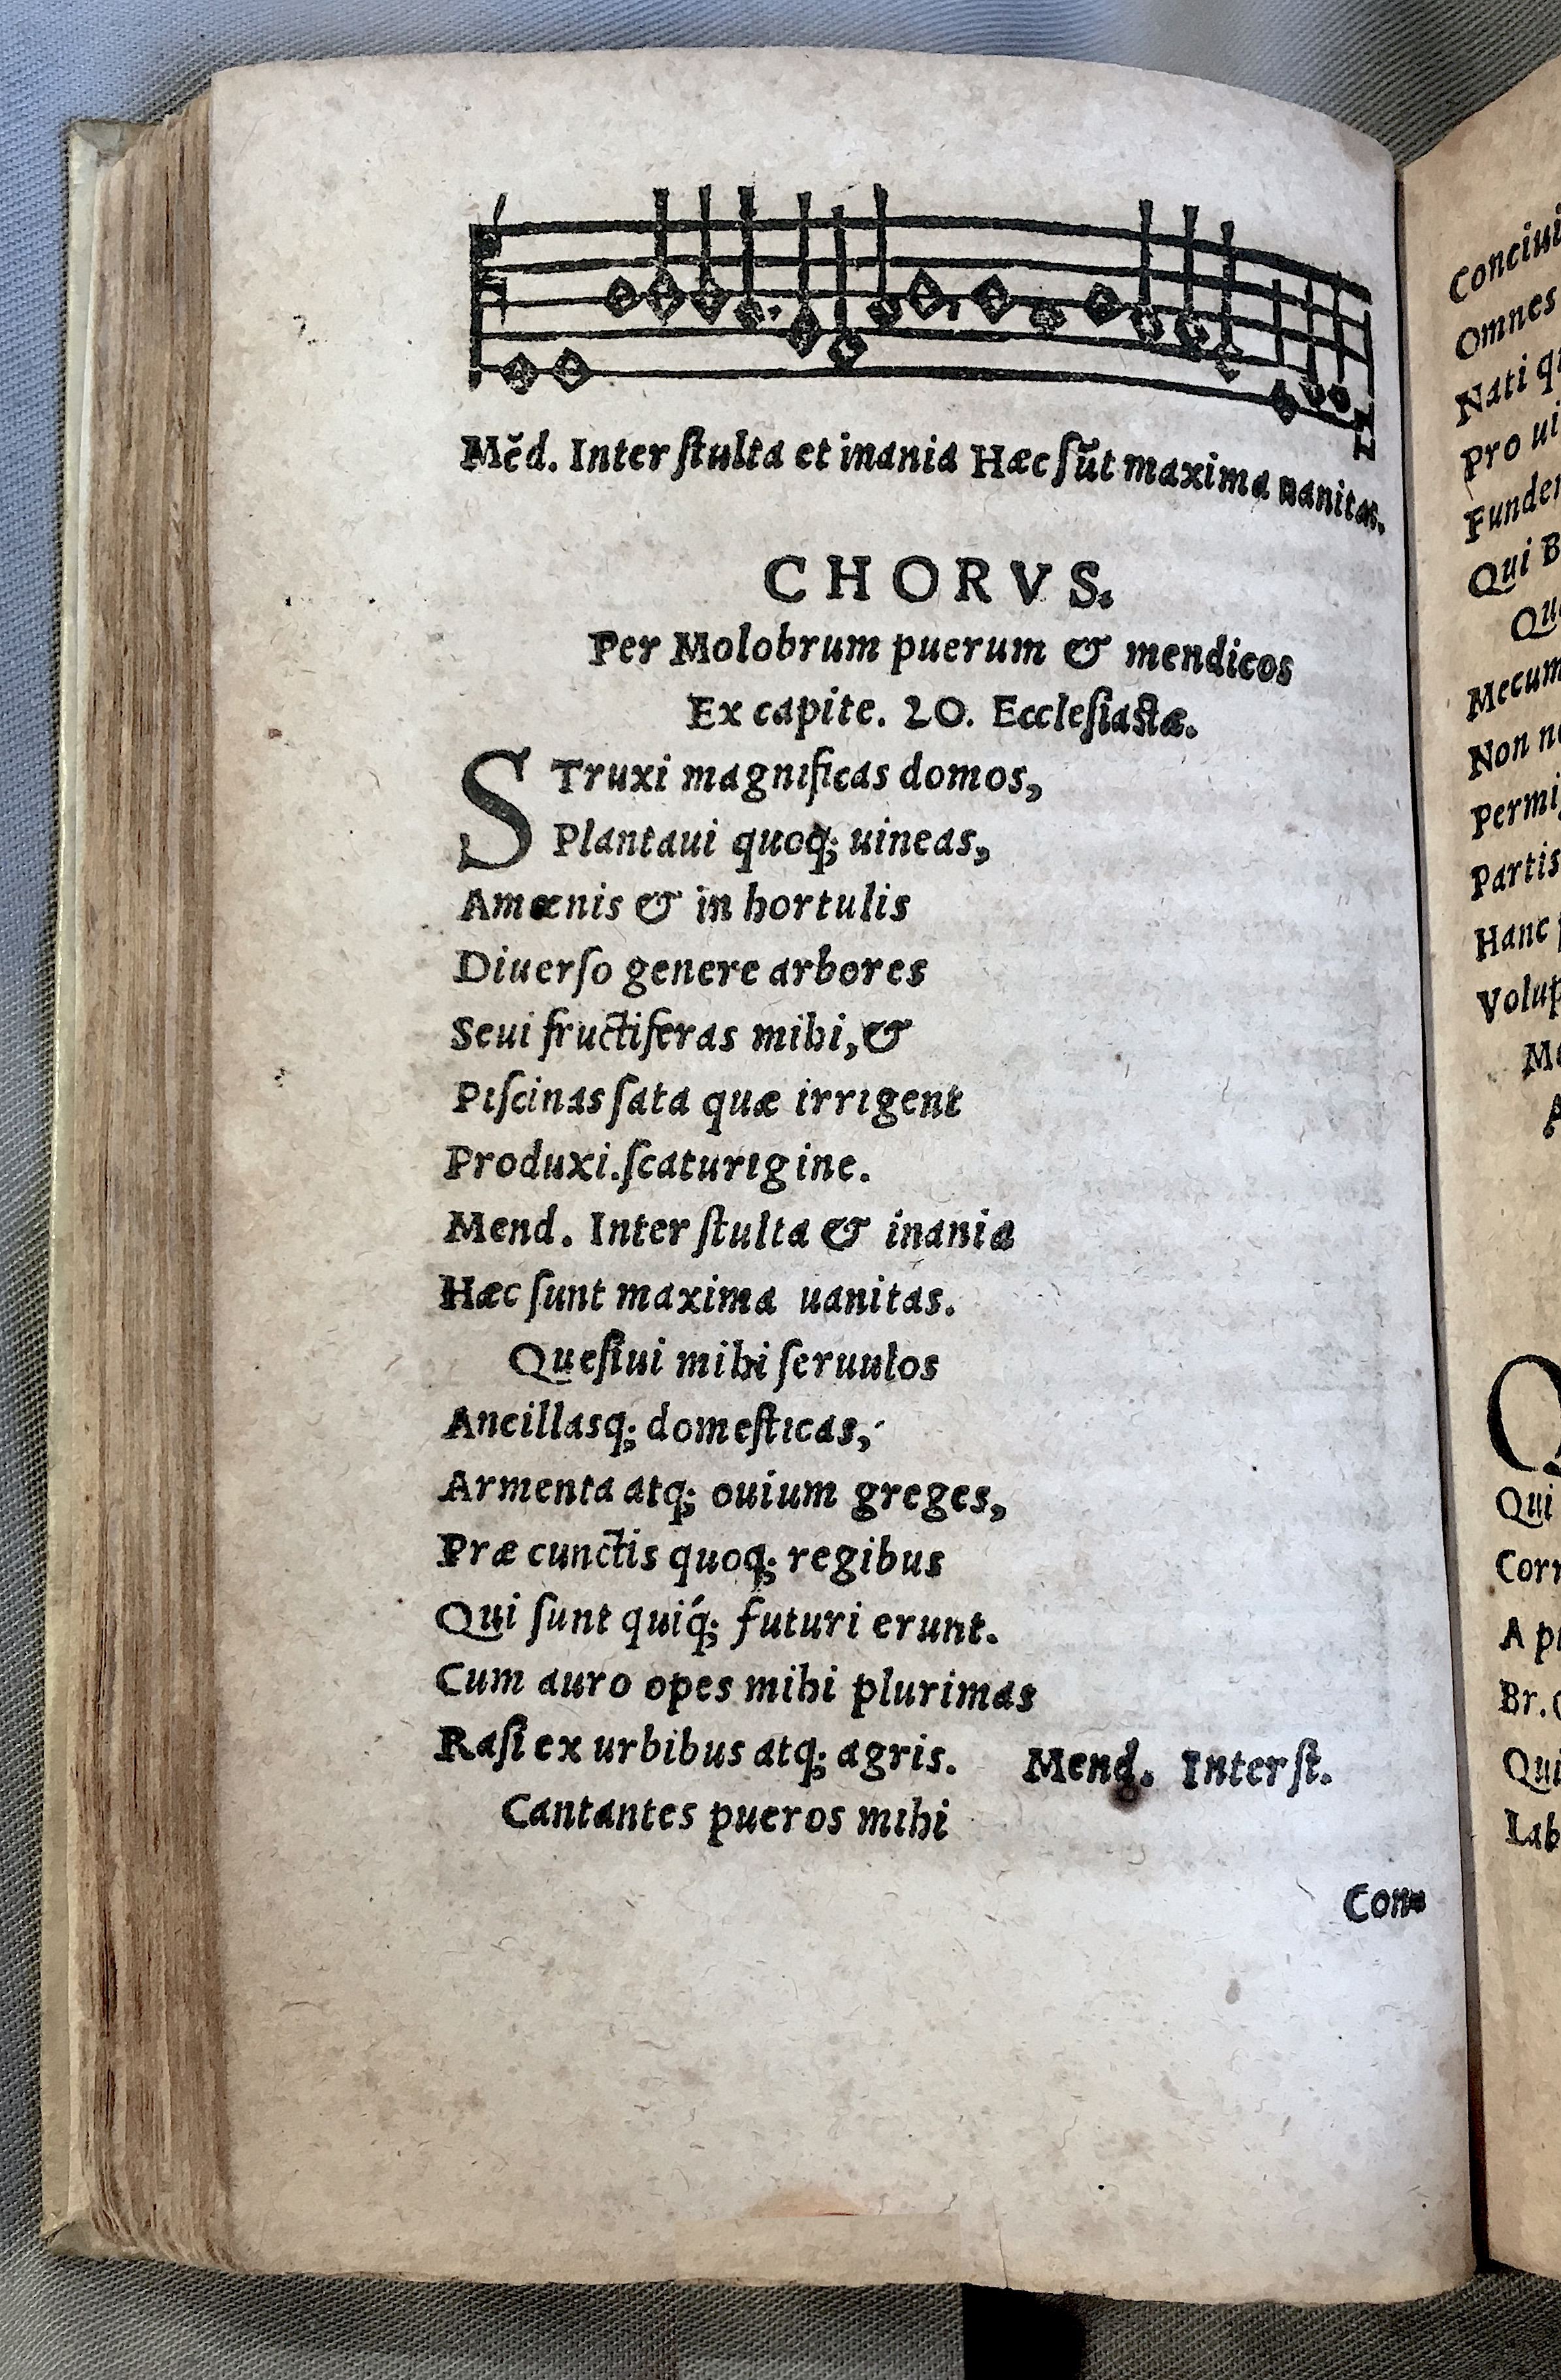 Mẽd. Inter ſtulta et inania Hæc ſũt maxima uanitas.
CHORVS.
Per Molobrum puerum & mendicos
Ex capite. 20. Eccleſiaſtæ.
STruxi magnificas domos,
Plantaui quoq; uineas,
Amœnis & in hortulis
Diuerſo genere arbores
Seui fructiferas mihi, &
Piſcinas ſata quæ irrigent
Produxi.ſcaturigine.
Mend. Inter ſtulta & inania
Hæc ſunt maxima uanitas.
Queſiui mihi ſeruulos
Ancillasq; domeſticas,
Armenta atq; ouium greges,
Præ cunctis quoq; regibus
Qui ſunt quiq́; futuri erunt.
Cum auro opes mihi plurimas
Raſi ex urbibus atq; agris. Mend. Inter ſt.
Cantantes pueros mihi
Con-
Conciui
Omnes
Nati q
Pro ui
Funder
Qui B
Qu
Mecum
Non n
Permi
Partis
Hanc
Volup
Me
A
Q
Qui
Corr
A p
Br.
Qui
Lab